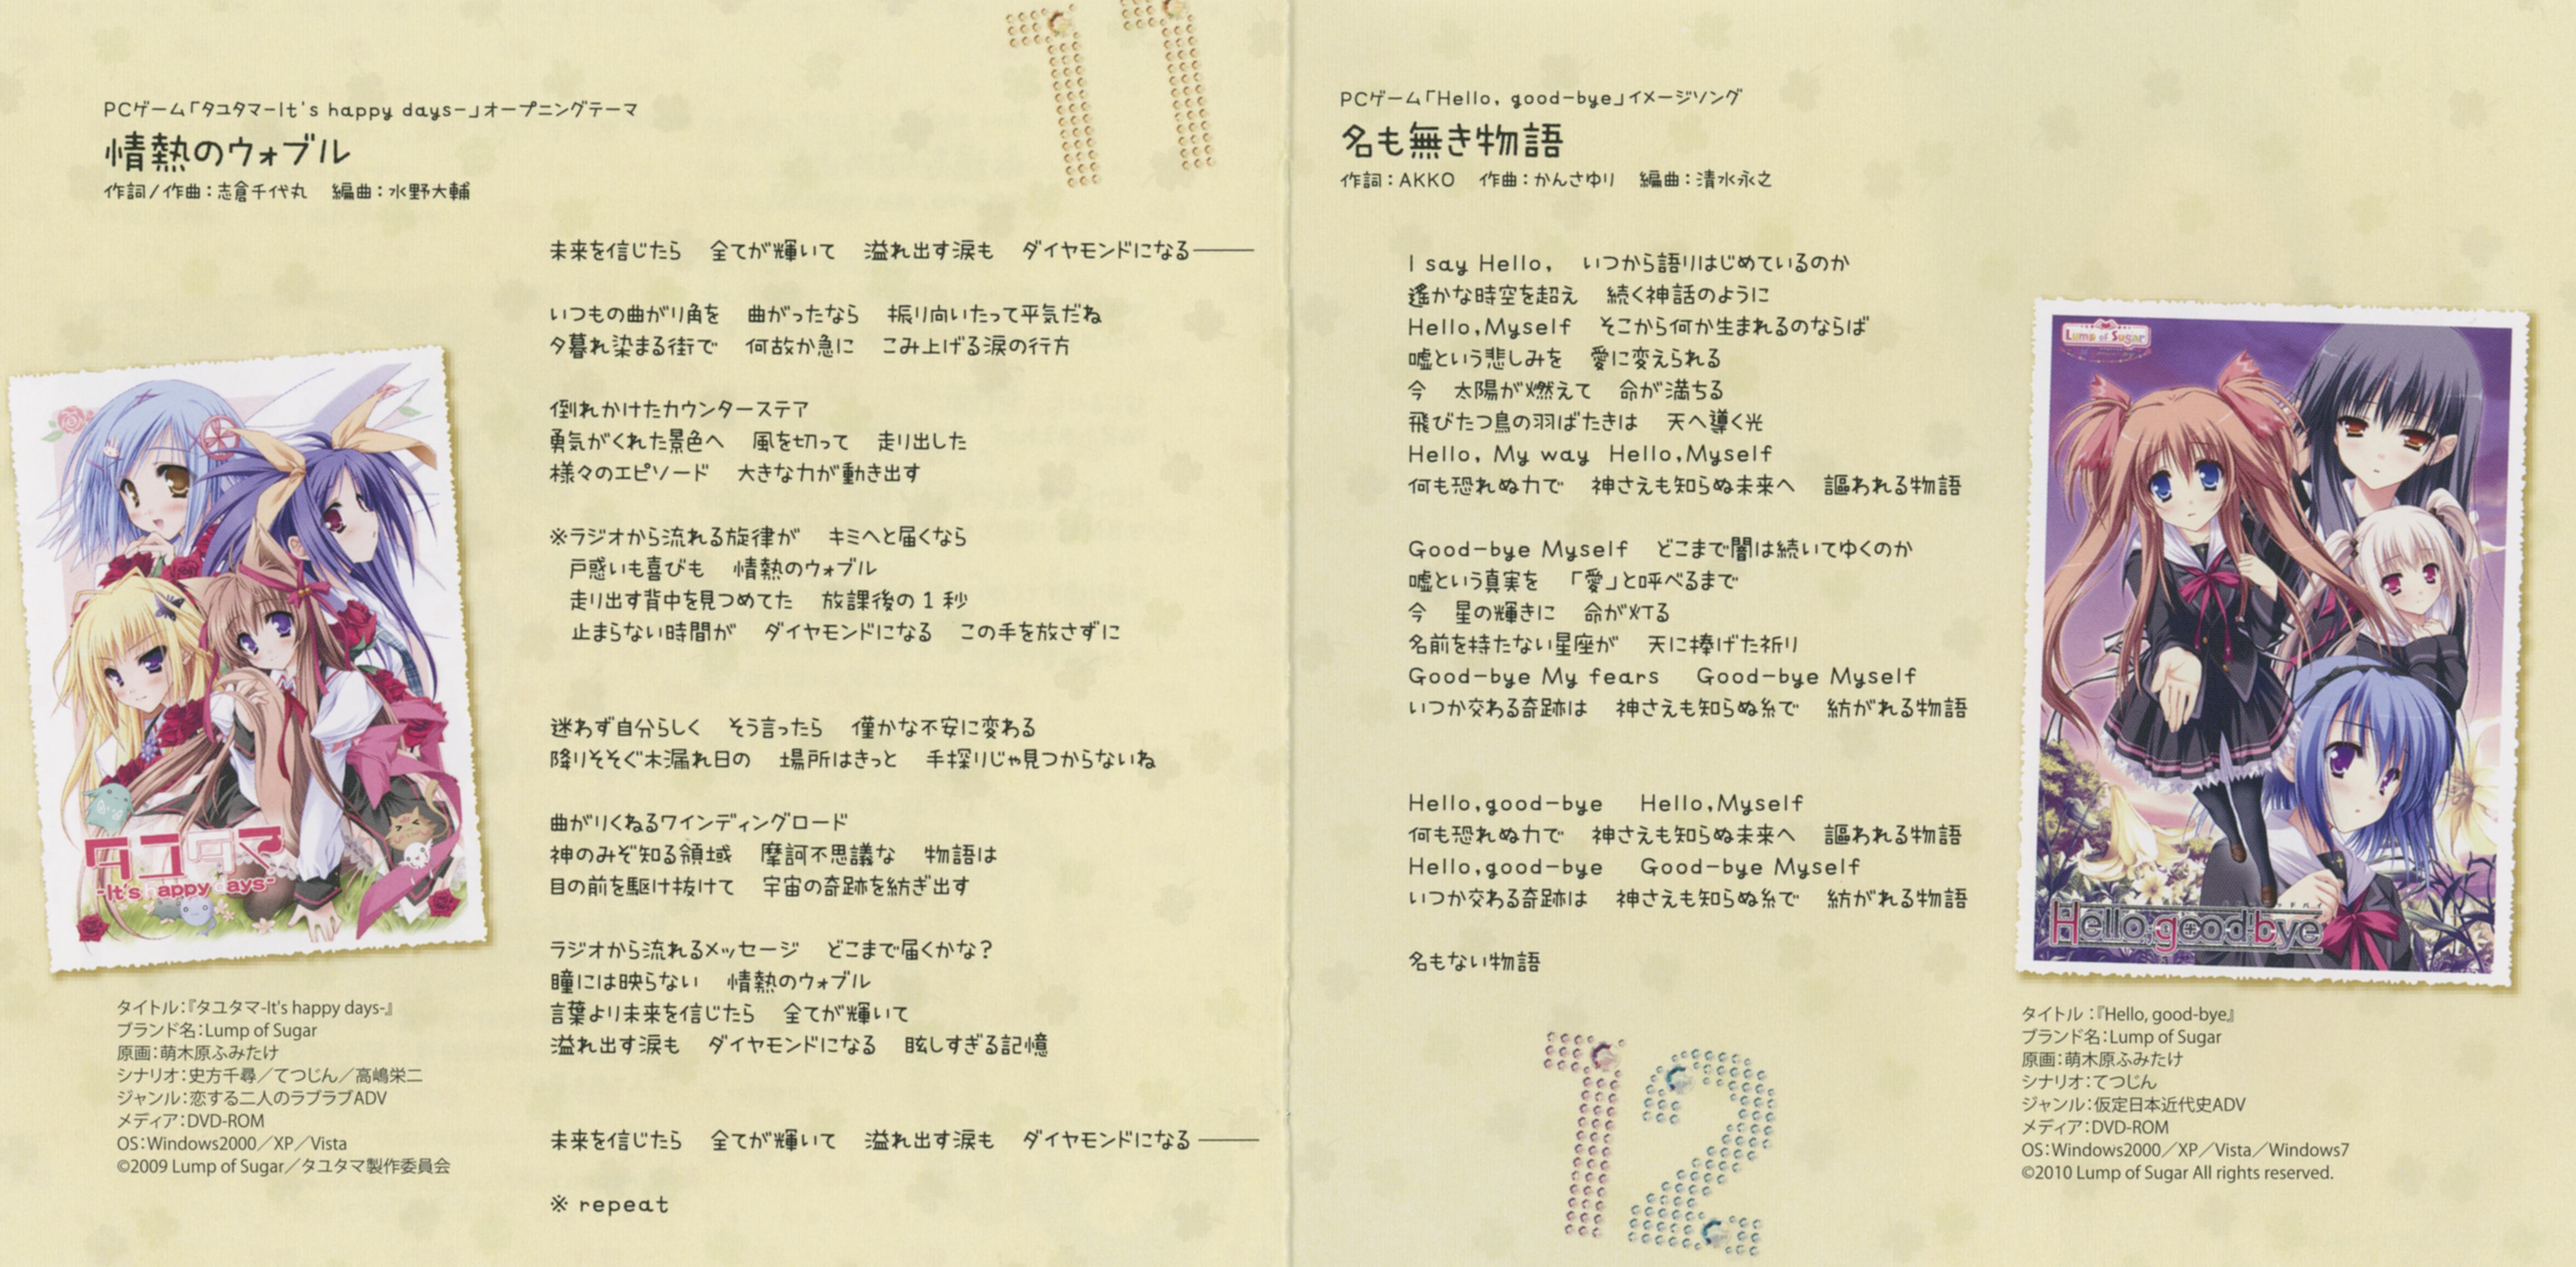 11
PCゲーム「タユタマ-It's happy days-」オープニングテーマ
情熱のウォブル
作詞/作曲:志倉千代丸 編曲:水野大輔
未来を信じたら 全てが輝いて 溢れ出す涙も ダイヤモンドになる――
いつもの曲がり角を 曲がったなら 振り向いたって平気だね
夕暮れ染まる街で 何故か急に こみ上げる涙の行方
倒れかけたカウンターステア
勇気がくれた景色へ 風を切って 走り出した
様々のエピソード 大きな力が動き出す
※ラジオから流れる旋律が キミへと届くなら
戸惑いも喜びも 情熱のウォブル
走り出す背中を見つめてた 放課後の1秒
止まらない時間が ダイヤモンドになる この手を放さずに
迷わず自分らしく そう言ったら 僅かな不安に変わる
降りそそぐ木漏れ日の 場所はきっと 手探りじゃ見つからないね
曲がりくねるワインディングロード
神のみぞ知る領域 摩訶不思議な 物語は
目の前を駆け抜けて 宇宙の奇跡を紡ぎ出す
ラジオから流れるメッセージ どこまで届くかな?
瞳には映らない 情熱のウォブル
言葉より未来を信じたら 全てが輝いて
溢れ出す涙も ダイヤモンドになる 眩しすぎる記憶
未来を信じたら 全てが輝いて 溢れ出す涙も ダイヤモンドになる――
※ repeat
タユタマ
-It's happy days-
タイトル:『タユタマ-It's happy days-』
ブランド名:Lump of Sugar
原画:萌木原ふみたけ
シナリオ:史方千尋/てつじん/高嶋栄二
ジャンル:恋する二人のラブラブADV
メディア:DVD-ROM
OS:Windows2000/XP/Vista
©2009 Lump of Sugar/タユタマ製作委員会
PCゲーム「Hello, good-bye」イメージソング
名も無き物語
作詞:AKKO 作曲:かんさゆり 編曲:清水永之
I say Hello, いつから語りはじめているのか
遙かな時空を超え 続く神話のように
Hello,Myself そこから何か生まれるのならば
嘘という悲しみを 愛に変えられる
今 太陽が燃えて 命が満ちる
飛びたつ鳥の羽ばたきは 天へ導く光
Hello, My way Hello,Myself
何も恐れぬ力で 神さえも知らぬ未来へ 謳われる物語
Good-bye Myself どこまで闇は続いてゆくのか
嘘という真実を 「愛」と呼べるまで
今 星の輝きに 命が灯る
名前を持たない星座が 天に捧げた祈り
Good-bye My fears Good-bye Myself
いつか交わる奇跡は 神さえも知らぬ糸で 紡がれる物語
Hello,good-bye Hello,Myself
何も恐れぬ力で 神さえも知らぬ未来へ 謳われる物語
Hello,good-bye Good-bye Myself
いつか交わる奇跡は 神さえも知らぬ糸で 紡がれる物語
名もない物語
12
Lump of Sugar
Hello,good-bye
タイトル:『Hello, good-bye』
ブランド名:Lump of Sugar
原画:萌木原ふみたけ
シナリオ:てつじん
ジャンル:仮定日本近代史ADV
メディア:DVD-ROM
OS:Windows2000/XP/Vista/Windows7
©2010 Lump of Sugar All rights reserved.